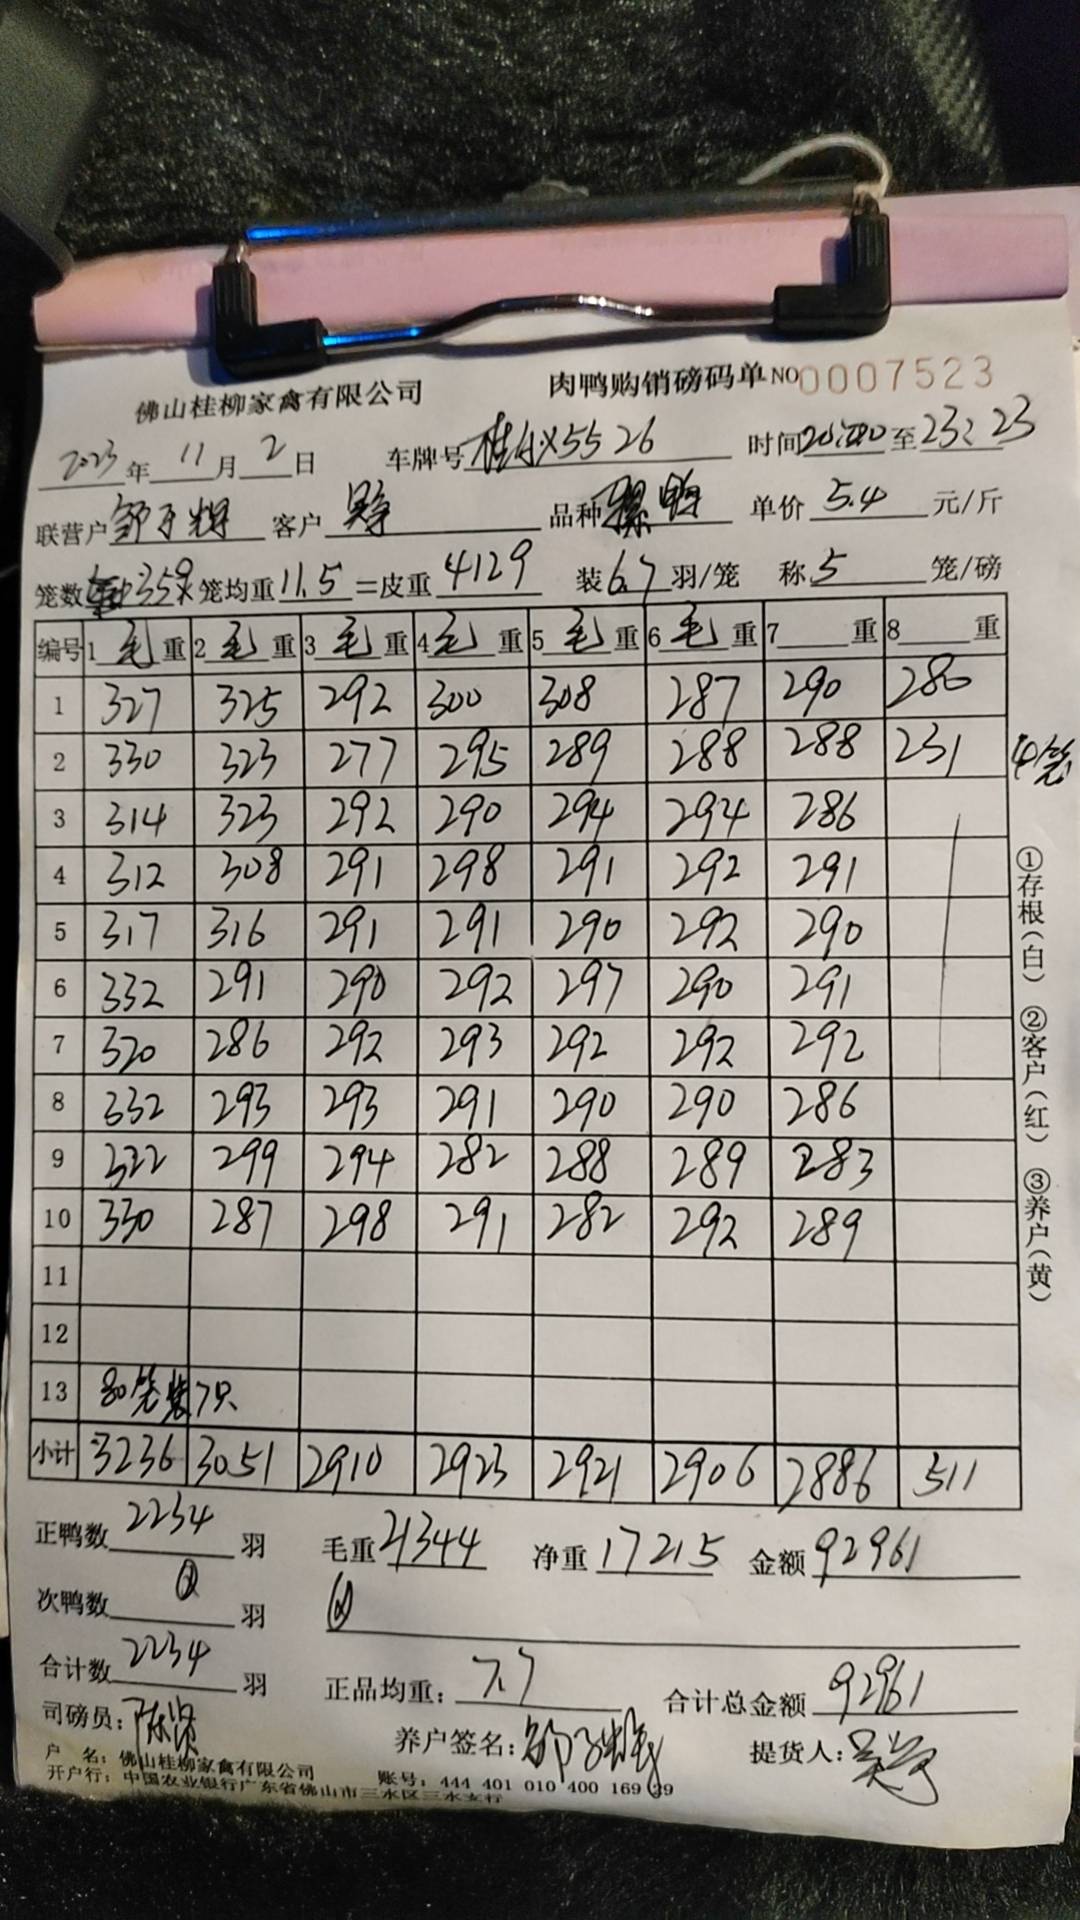 佛山桂柳家禽有限公司 肉鸭购销磅码单 NO 0007523
2023年11月2日 车牌号 5526 时间 至23:23
联营户 客户 品种 鸭 单价5.4元/斤
笼数 359 笼均重11.5=皮重4129 装6.7羽/笼 称5笼/磅
编号 1毛重 2毛重 3毛重 4毛重 5毛重 6毛重 7重 8重
1 327 325 292 300 308 287 290 280
2 330 323 277 295 289 288 288 231 4笼
3 314 323 292 290 294 294 286
4 312 308 291 298 291 292 291
5 317 316 291 291 290 292 290
6 332 291 290 292 297 290 291
7 320 286 292 293 292 292 292
8 332 293 293 291 290 290 286
9 322 299 294 282 288 289 283
10 330 287 298 291 282 292 289
11
12
13 80笼装7只
小计 3236 3051 2910 2923 2921 2906 2886 511
正鸭数2234羽 毛重21344 净重17215 金额92961
次鸭数 羽
合计数2234羽 正品均重:7.7 合计总金额92961
司磅员: 养户签名: 提货人:
户 名:佛山桂柳家禽有限公司 账号:444 401 010 400 169 39
开户行:中国农业银行广东省佛山市三水区三水支行
①存根(白) ②客户(红) ③养户(黄)